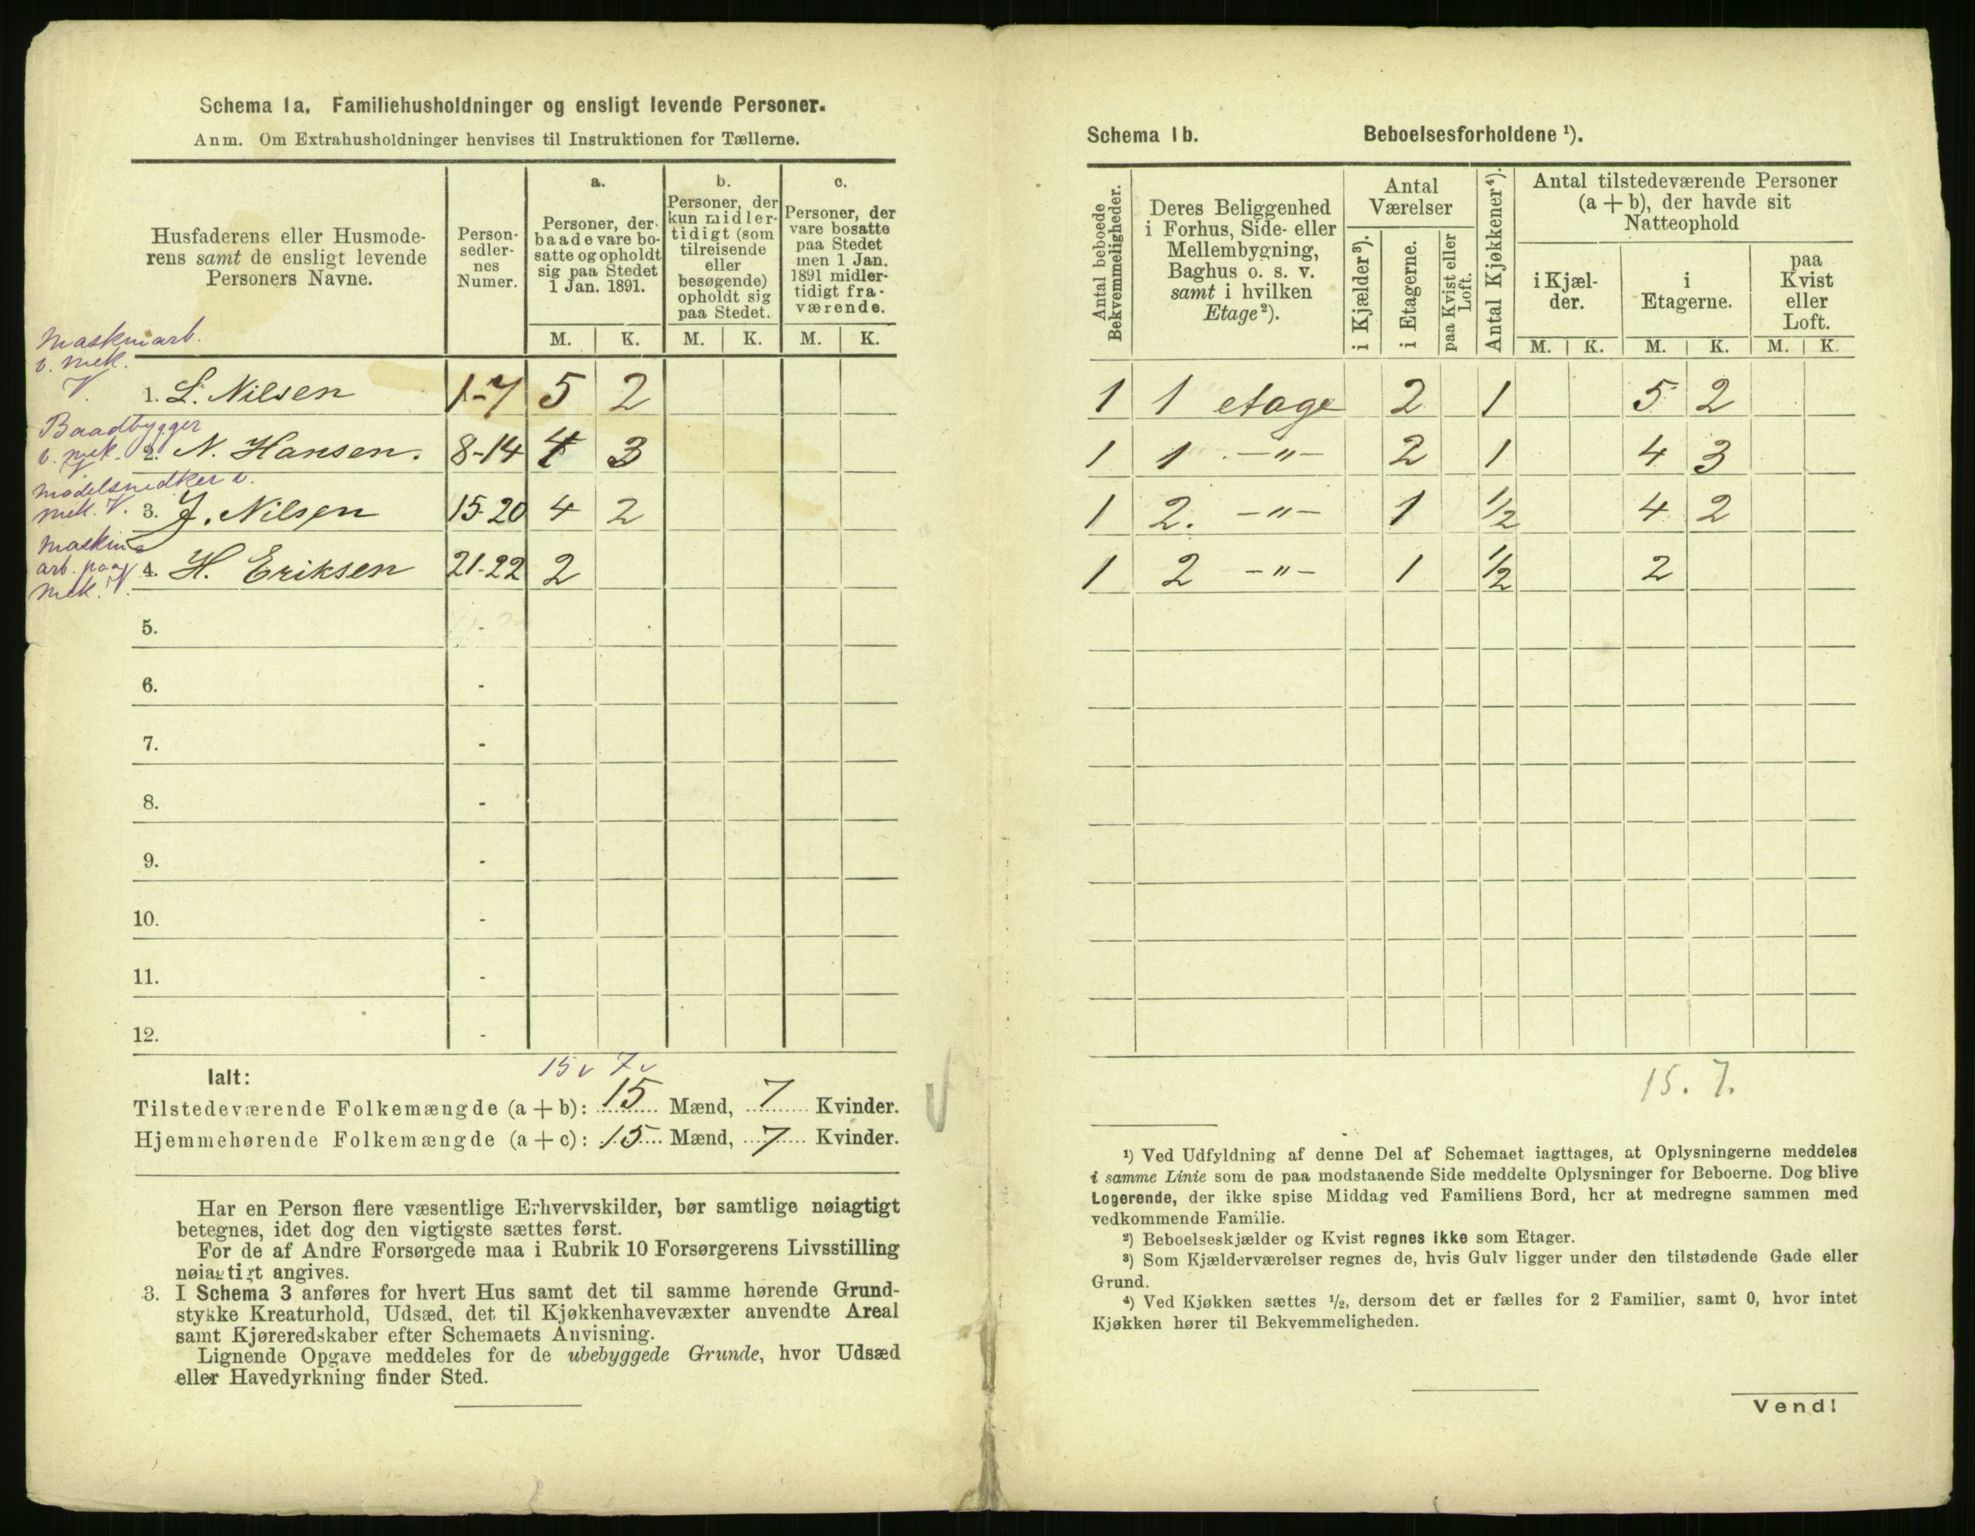 Schema 1a. Familiehusholdninger og ensligt levende Personer.
Anm. Om Extrahusholdninger henvises til Instruktionen for Tællerne.
Husfaderens eller Husmode-
rens samt de ensligt levende
Personers Navne.
Person-
sedler-
nes
Numer.
a.
Personer, der
baade vare bo-
satte og opholdt
sig paa Stedet
1 Jan. 1891.
b.
Personer, der
kun midler-
tidigt (som
tilreisende
eller
besøgende)
opholdt sig
paa Stedet.
c.
Personer, der
vare bosatte
paa Stedet
men 1 Jan.
1891 midler-
tidigt fra-
værende.
M. K. M. K. M. K.
Maskinarb.
v. mek.
V.
1. L. Nilsen 1-7 5 2
Baadbygger
v. mek.
2. N. Hansen. 8-14 4 3
Modelsnedker v.
mek. V.
3. J. Nilsen 15-20 4 2
Maskin
arb. paa
mek. V.
4. H. Eriksen 21-22 2
5. -
6. -
7. -
8. -
9. -
10. -
11. -
12. -
15 v 7 v
Ialt:
Tilstedeværende Folkemængde (a + b): 15 Mænd, 7 Kvinder.
Hjemmehørende Folkemængde (a + c): 15 Mænd, 7 Kvinder.
Har en Person flere væsentlige Erhvervskilder, bør samtlige nøiagtigt
betegnes, idet dog den vigtigste sættes først.
For de af Andre Forsørgede maa i Rubrik 10 Forsørgerens Livsstilling
nøiagtigt angives.
3. I Schema 3 anføres for hvert Hus samt det til samme hørende Grund-
stykke Kreaturhold, Udsæd, det til Kjøkkenhavevæxter anvendte Areal
samt Kjøreredskaber efter Schemaets Anvisning.
Lignende Opgave meddeles for de ubebyggede Grunde, hvor Udsæd
eller Havedyrkning finder Sted.
Schema 1b. Beboelsesforholdene ¹).
Antal beboede
Bekvemmeligheder.
Deres Beliggenhed
i Forhus, Side- eller
Mellembygning,
Baghus o. s. v.
samt i hvilken
Etage²).
Antal
Værelser
i Kjælder³).
i Etagerne.
paa Kvist eller
Loft.
Antal Kjøkkener⁴).
Antal tilstedeværende Personer
(a + b), der havde sit
Natteophold
i Kjæl-
der.
i
Etagerne.
paa
Kvist
eller
Loft.
M. K. M. K. M. K.
1 1 etage 2 1 5 2
1 1 -"- 2 1 4 3
1 2. -"- 1 1/2 4 2
1 2 -"- 1 1/2 2
15. 7.
¹) Ved Udfyldning af denne Del af Schemaet iagttages, at Oplysningerne meddeles
i samme Linie som de paa modstaaende Side meddelte Oplysninger for Beboerne. Dog blive
Logerende, der ikke spise Middag ved Familiens Bord, her at medregne sammen med
vedkommende Familie.
²) Beboelseskjælder og Kvist regnes ikke som Etager.
³) Som Kjælderværelser regnes de, hvis Gulv ligger under den tilstødende Gade eller
Grund.
⁴) Ved Kjøkken sættes ½, dersom det er fælles for 2 Familier, samt 0, hvor intet
Kjøkken hører til Bekvemmeligheden.
Vend!